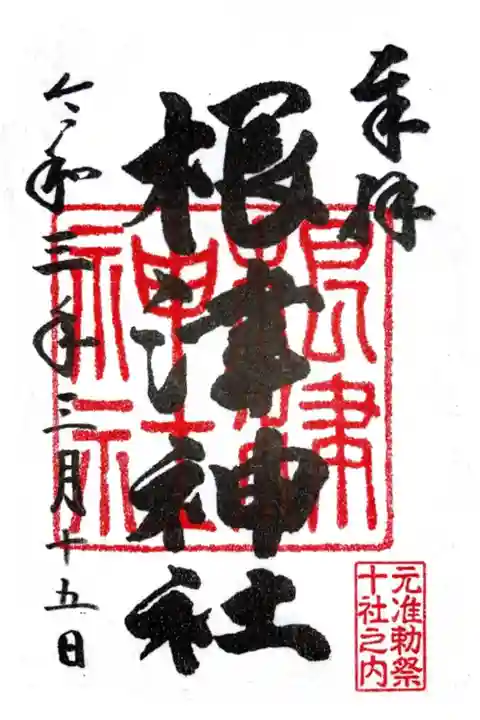 奉拝
根津神社
令和三年三月十五日
根津
神社
元准勅祭
十社之内